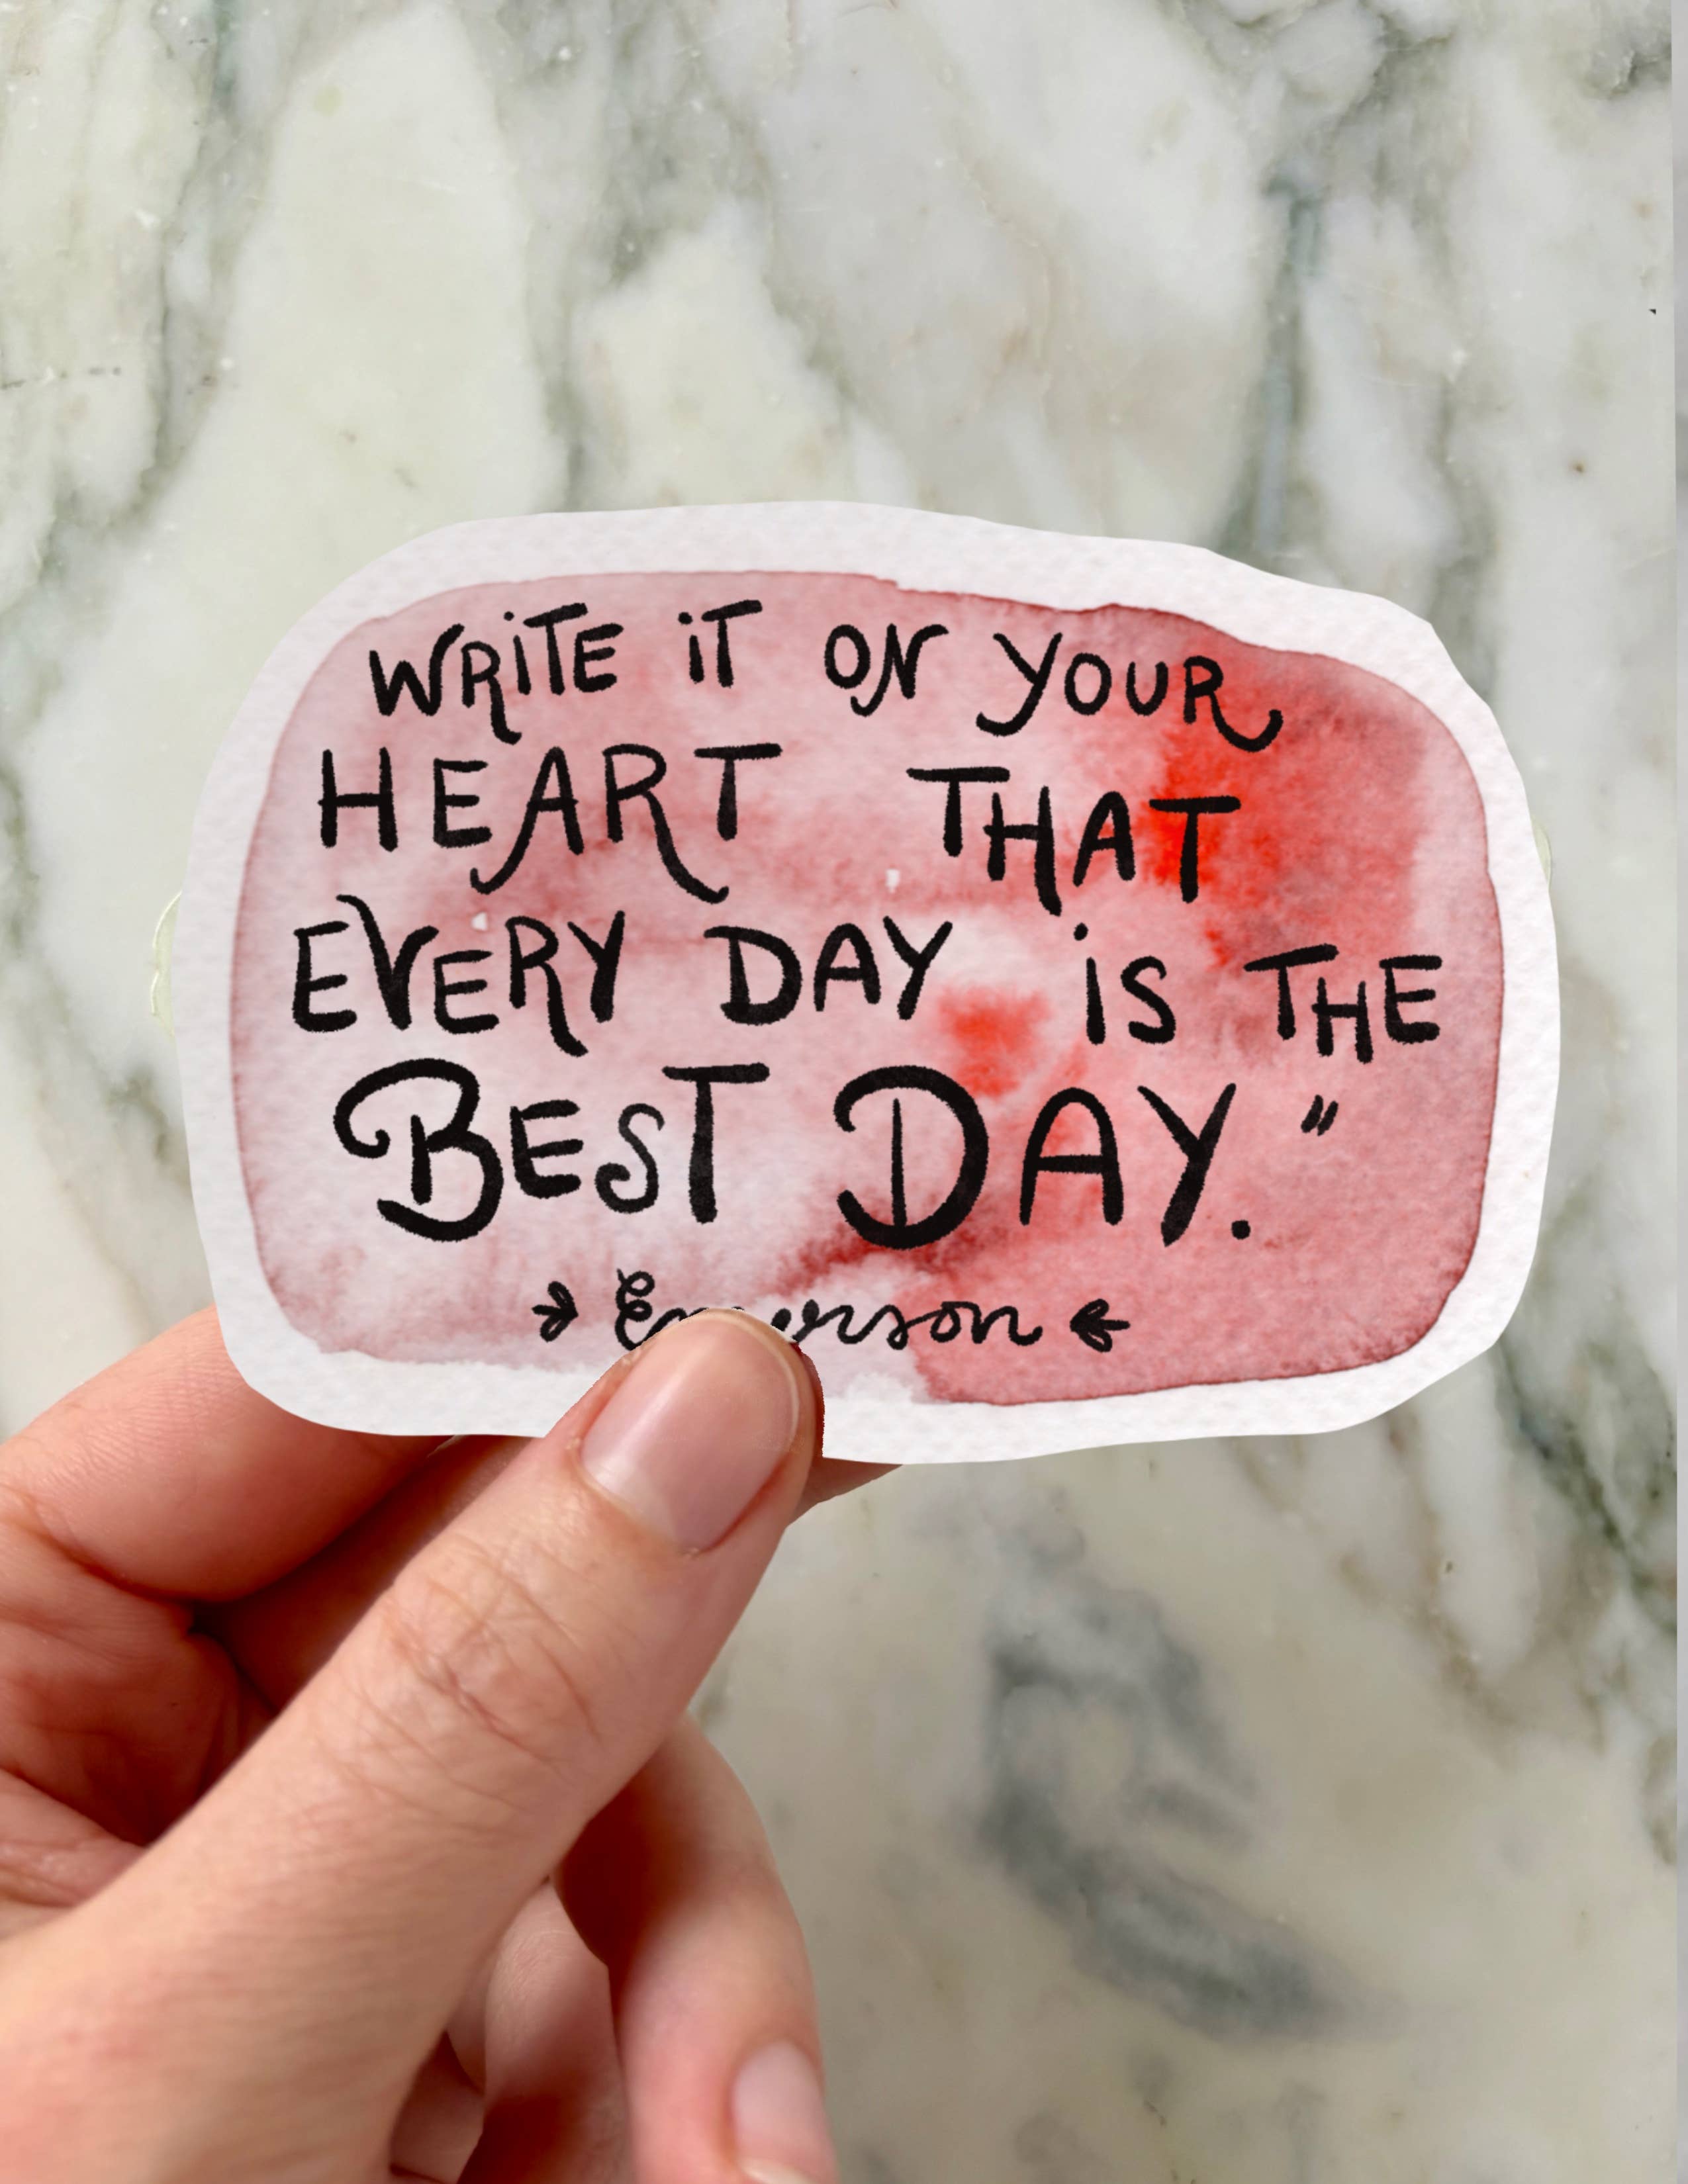 WRITE IT ON YOUR
HEART THAT
EVERY DAY IS THE
BEST DAY."
Emerson